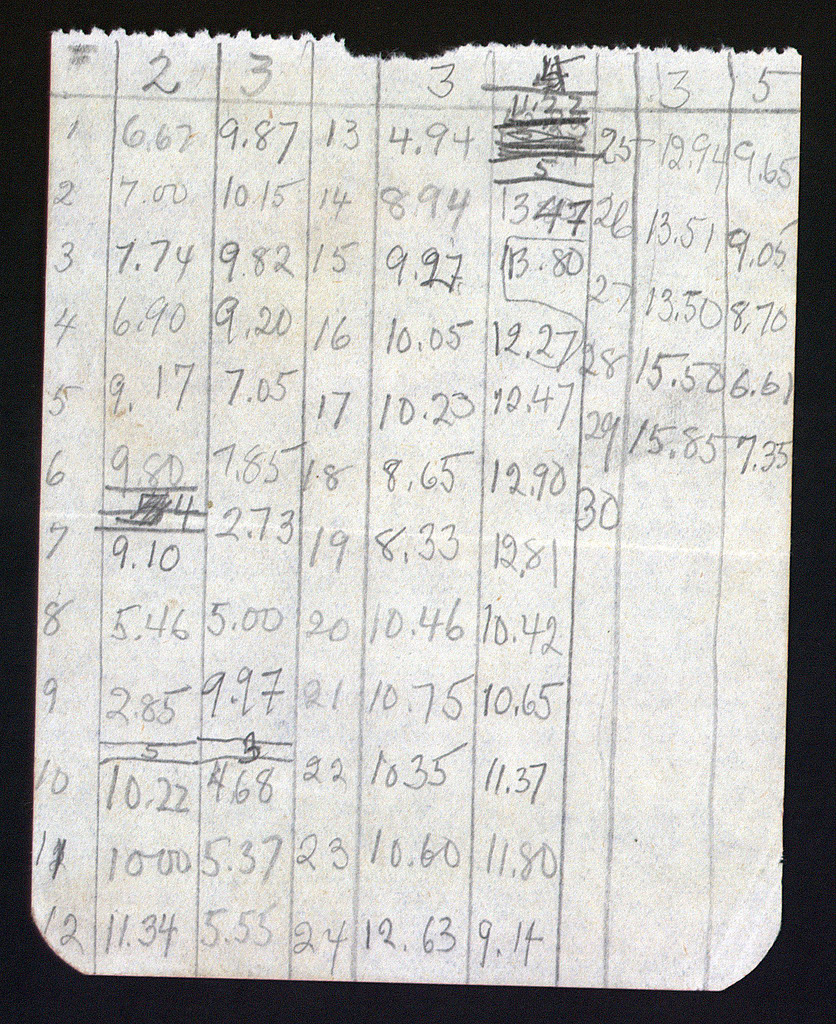 2 3 3
11.22 3 5
1 6.67 9.87 13 4.94 25 12.94 9.65
5
2 7.00 10.15 14 8.94 13.47 26 13.51 9.05
3 7.74 9.82 15 9.97 13.80 27 13.50 8.70
4 6.90 9.20 16 10.05 12.27 28 15.58 6.61
5 9.17 7.05 17 10.23 12.47 29 15.85 7.35
6 9.80 7.85 18 8.65 12.90 30
4
7 9.10 2.73 19 8.33 12.81
8 5.46 5.00 20 10.46 10.42
9 2.85 9.97 21 10.75 10.65
5 3
10 10.22 4.68 22 10.35 11.37
11 10.00 5.37 23 10.60 11.80
12 11.34 5.55 24 12.63 9.14